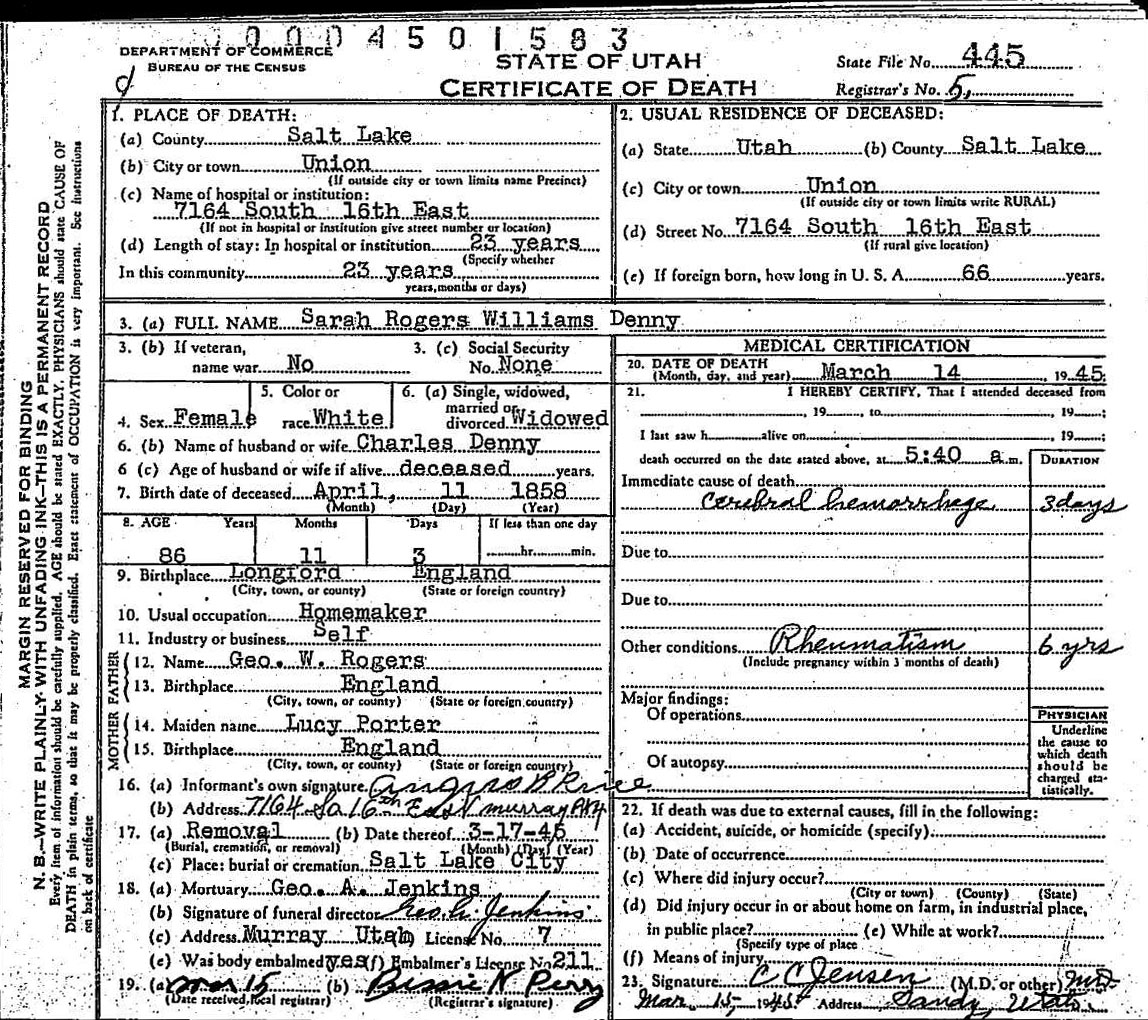 0004501583
DEPARTMENT OF COMMERCE
BUREAU OF THE CENSUS
d
STATE OF UTAH
CERTIFICATE OF DEATH
State File No. 445
Registrar's No. 5,
MARGIN RESERVED FOR BINDING
N. B.—WRITE PLAINLY WITH UNFADING INK—THIS IS A PERMANENT RECORD
Every item of information should be carefully supplied. AGE should be stated EXACTLY. PHYSICIANS should state CAUSE OF
DEATH in plain terms, so that it may be properly classified. Exact statement of OCCUPATION is very important. See instructions
on back of certificate
1. PLACE OF DEATH:
(a) County Salt Lake
(b) City or town Union
(If outside city or town limits name Precinct)
(c) Name of hospital or institution:
7164 South 16th East
(If not in hospital or institution give street number or location)
(d) Length of stay: In hospital or institution 23 years
(Specify whether
In this community 23 years
years, months or days)
2. USUAL RESIDENCE OF DECEASED:
(a) State Utah (b) County Salt Lake
(c) City or town Union
(If outside city or town limits write RURAL)
(d) Street No. 7164 South 16th East
(If rural give location)
(e) If foreign born, how long in U. S. A. 66 years.
3. (a) FULL NAME Sarah Rogers Williams Denny
3. (b) If veteran,
name war No
3. (c) Social Security
No. None
4. Sex Female
5. Color or
race White
6. (a) Single, widowed,
married or
divorced Widowed
6. (b) Name of husband or wife Charles Denny
6 (c) Age of husband or wife if alive deceased years.
7. Birth date of deceased April, 11 1858
(Month) (Day) (Year)
8. AGE Years Months Days If less than one day
86 11 3 hr. min.
9. Birthplace Longford England
(City, town, or county) (State or foreign country)
10. Usual occupation Homemaker
11. Industry or business Self
FATHER
12. Name Geo. W. Rogers
13. Birthplace England
(City, town, or county) (State or foreign country)
MOTHER
14. Maiden name Lucy Porter
15. Birthplace England
(City, town, or county) (State or foreign country)
16. (a) Informant's own signature B Price
(b) Address 7164 So 16th East Murray
17. (a) Removal (b) Date thereof 3-17-45
(Burial, cremation, or removal) (Month) (Day) (Year)
(c) Place: burial or cremation Salt Lake City
18. (a) Mortuary Geo. A. Jenkins
(b) Signature of funeral director Geo. A. Jenkins
(c) Address Murray Utah License No. 7
(e) Was body embalmed yes (f) Embalmer's License No 211
19. (a) Mar 15 (b) Bessie N Perry
(Date received local registrar) (Registrar's signature)
MEDICAL CERTIFICATION
20. DATE OF DEATH
(Month, day, and year) March 14, 1945
21. I HEREBY CERTIFY, That I attended deceased from
, 19 , to , 19 ;
I last saw h alive on , 19 ;
death occurred on the date stated above, at 5:40 a m.
DURATION
Immediate cause of death
cerebral hemorrhage 3 days
Due to
Due to
Other conditions Rheumatism 6 yrs
(Include pregnancy within 3 months of death)
Major findings:
Of operations
Of autopsy
PHYSICIAN
Underline
the cause to
which death
should be
charged sta-
tistically.
22. If death was due to external causes, fill in the following:
(a) Accident, suicide, or homicide (specify)
(b) Date of occurrence
(c) Where did injury occur?
(City or town) (County) (State)
(d) Did injury occur in or about home on farm, in industrial place,
in public place? (e) While at work?
(Specify type of place
(f) Means of injury
23. Signature C C Jensen (M.D. or other) M.D.
Mar 15, 1945 Address Sandy, Utah